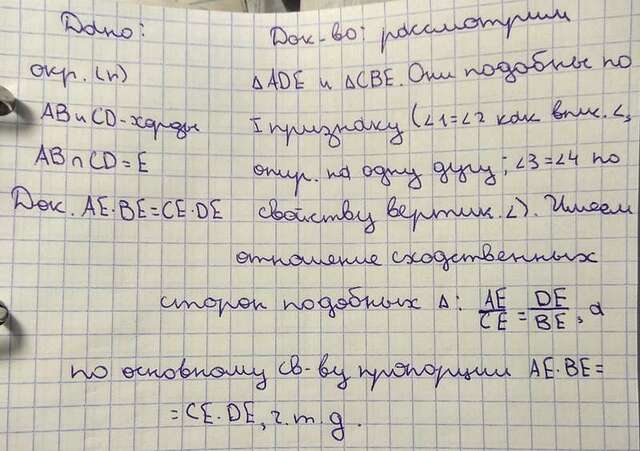 Дано:
окр. (r)
AB и CD-хорды
AB∩CD=E
Док. AE·BE=CE·DE
Док-во: рассмотрим
△ADE и △CBE. Они подобны по
I признаку (∠1=∠2 как впис. ∠,
опир. на одну дугу; ∠3=∠4 по
свойству вертик. ∠). Имеем
отношение сходственных
сторон подобных △: AE/CE = DE/BE, а
по основному св-ву пропорции AE·BE=
=CE·DE, ч.т.д.